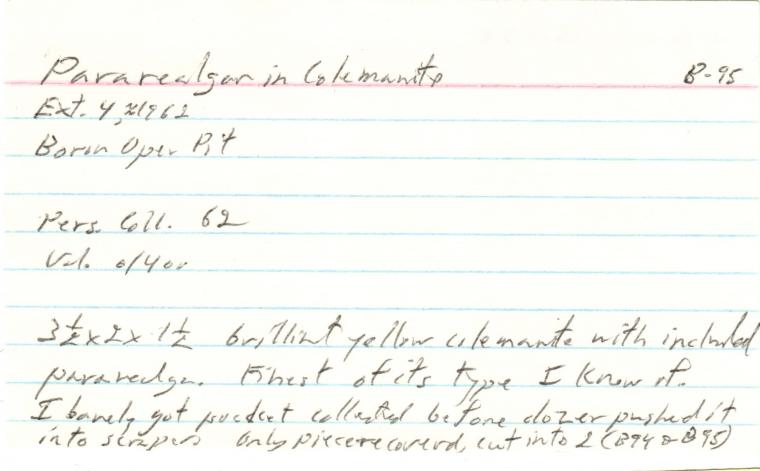 Pararealgar in Colemanite B-95
Ext. 4, 1962
Boron Open Pit
Pers. Coll. 62
Val. 0/400
3½ x 2 x 1½ brillint yellow colemanite with included
pararealga. Finest of its type I know of.
I barely got pocket collected before dozer pushed it
into scrapers only piece recoverd, cut into 2 (B94 & B95)